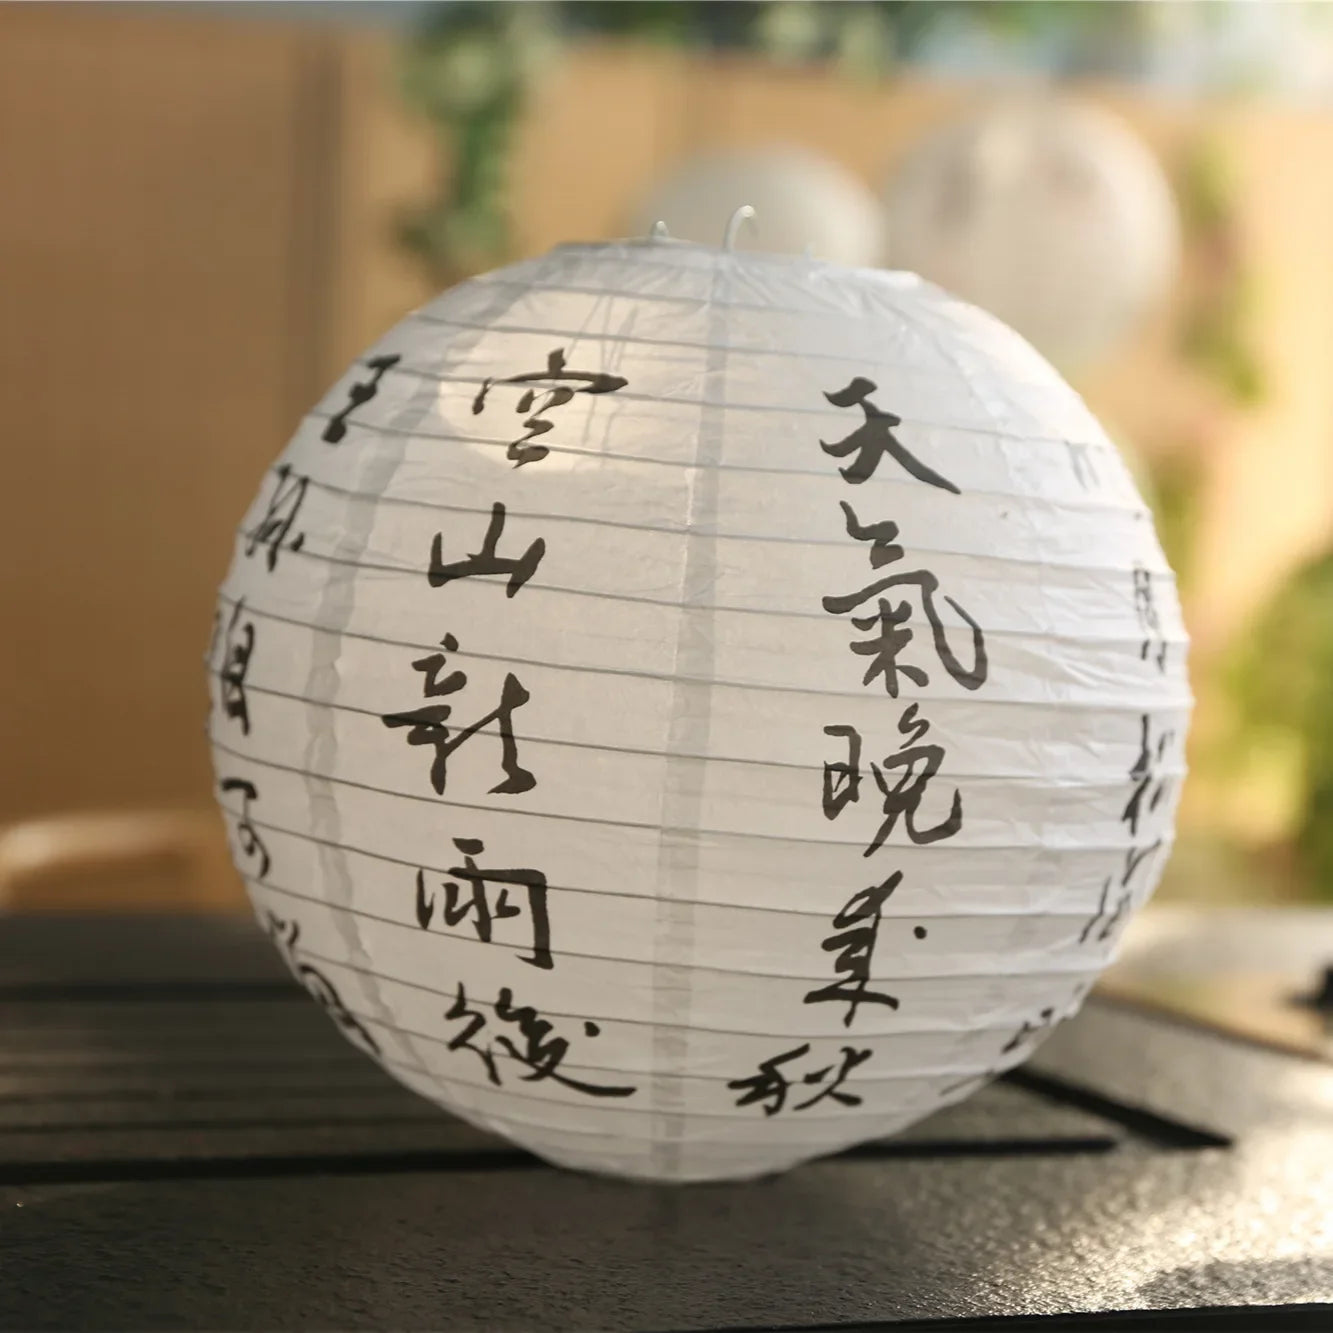 王孫自可留
空山新雨後
天氣晚來秋